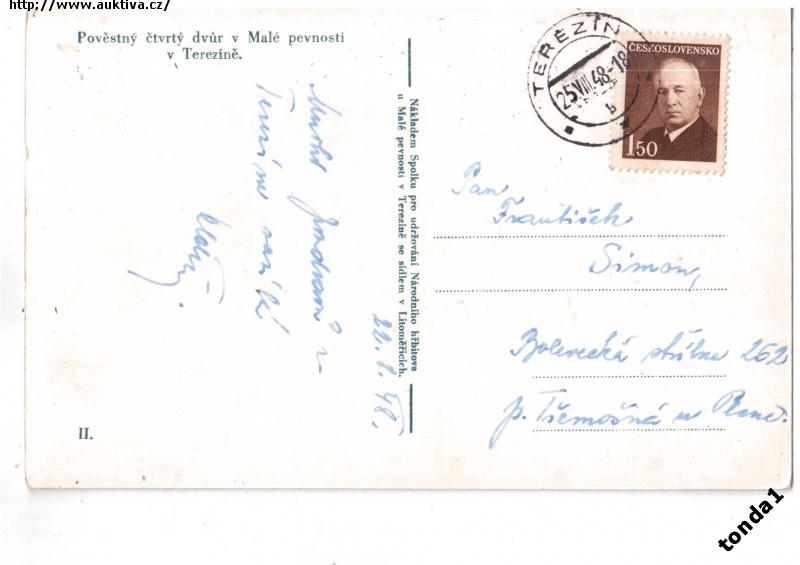 http://www.auktiva.cz/
Pověstný čtvrtý dvůr v Malé pevnosti
v Terezíně.
22. 8. 48.
II.
Nákladem Spolku pro udržování Národního hřbitova
u Malé pevnosti v Terezíně se sídlem v Litoměřicích.
TEREZÍN
25.VIII.48-18
b
ČESKOSLOVENSKO
1.50
Pan
František
Simon,
Bolevecká 262
p. Třemošná u Plzně.
tonda1